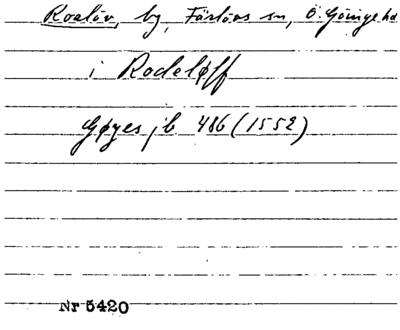 Roalöv, by, Färlövs sn, Ö. Göinge hd
i Rodeløff
Gøyes jb 486 (1552)
Nr 5420